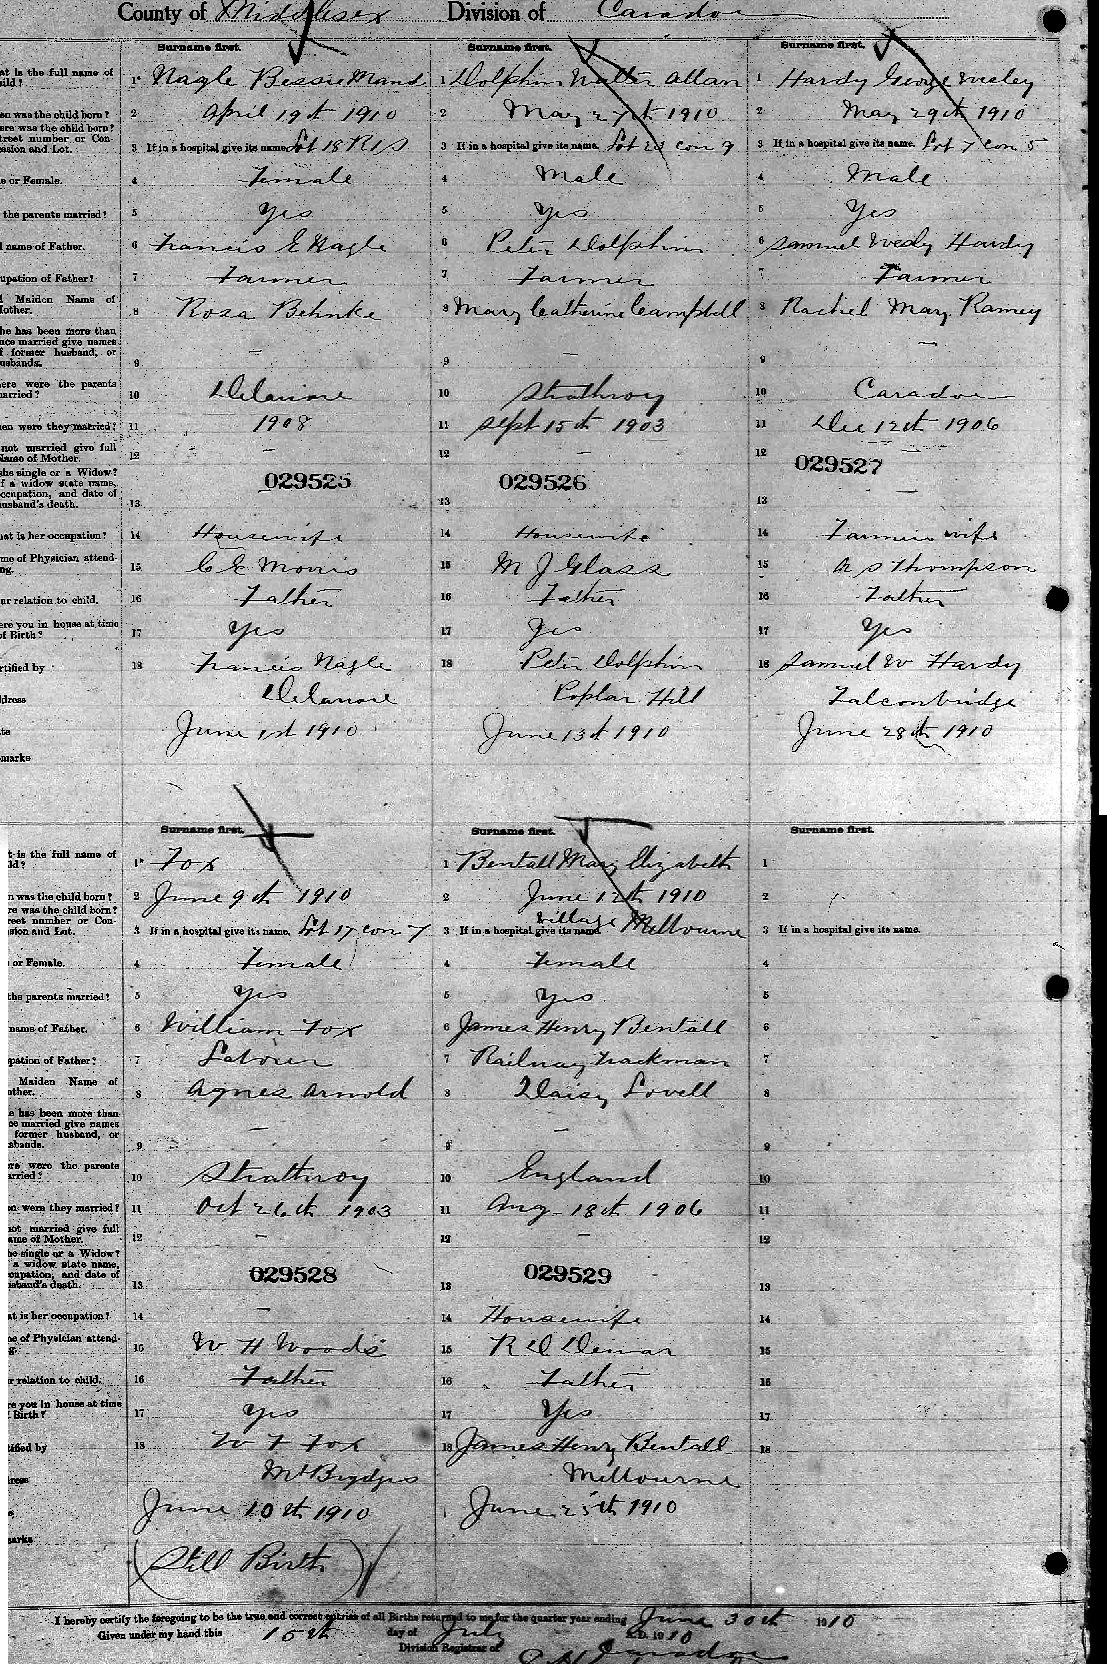 County of Middlesex Division of Caradoc
Surname first. Surname first. Surname first.
at is the full name of
ild? 1 Nagle Bessie Maud 1 Dolphin Walter Allan 1 Hardy George Wesley
en was the child born? 2 April 19th 1910 2 May 27th 1910 2 May 29th 1910
ere was the child born?
treet number or Con-
ession and Lot. 3 If in a hospital give its name. Lot 18 R 1 S 3 If in a hospital give its name. Lot 23 con 9 3 If in a hospital give its name. Lot 7 con 5
e or Female. 4 Female 4 Male 4 Male
the parents married? 5 Yes 5 Yes 5 Yes
l name of Father. 6 Francis E Nagle 6 Peter Dolphin 6 Samuel Wesly Hardy
upation of Father? 7 Farmer 7 Farmer 7 Farmer
l Maiden Name of
Mother. 8 Rosa Behnke 8 Mary Catherine Campbell 8 Rachel May Ramey
he has been more than
nce married give names
f former husband, or
usbands. 9 — 9 — 9 —
here were the parents
arried? 10 Delaware 10 Strathroy 10 Caradoc
hen were they married? 11 1908 11 Sept 15th 1903 11 Dec 12th 1906
not married give full
Name of Mother. 12 — 12 — 12
she single or a Widow?
f a widow state name,
ccupation, and date of
usband's death. 13 029525 13 029526 13 029527
hat is her occupation? 14 Housewife 14 Housewife 14 Farmers wife
me of Physician attend-
ng. 15 C E Morris 15 M J Glass 15 A S Thompson
ur relation to child. 16 Father 16 Father 16 Father
ere you in house at time
of Birth? 17 Yes 17 Yes 17 Yes
rtified by 18 Francis Nagle 18 Peter Dolphin 18 Samuel W Hardy
ddress Delaware Poplar Hill Falconbridge
te June 1st 1910 June 13th 1910 June 28th 1910
marks
Surname first. Surname first. Surname first.
t is the full name of
ld? 1 Fox 1 Bentall Mary Elizabeth 1
n was the child born? 2 June 9th 1910 2 June 12th 1910 2
re was the child born?
reet number or Con-
ssion and Lot. 3 If in a hospital give its name. Lot 17 con 7 3 If in a hospital give its name. Village Melbourne 3 If in a hospital give its name.
or Female. 4 Female 4 Female 4
the parents married? 5 Yes 5 Yes 5
name of Father. 6 William Fox 6 James Henry Bentall 6
pation of Father? 7 Labour 7 Railway Trackman 7
Maiden Name of
other. 8 Agnes Arnold 8 Daisy Lovell 8
e has been more than
ce married give names
former husband, or
sbands. 9 — 9 — 9
re were the parents
arried? 10 Strathroy 10 England 10
n were they married? 11 Oct 26th 1903 11 Aug 18th 1906 11
not married give full
ame of Mother. 12 — 12 — 12
he single or a Widow?
a widow state name,
cupation, and date of
sband's death. 13 029528 13 029529 13
at is her occupation? 14 — 14 Housewife 14
e of Physician attend-
g. 15 W H Woods 15 R D Dewar 15
r relation to child. 16 Father 16 Father 16
re you in house at time
f Birth? 17 Yes 17 Yes 17
tified by 18 W F Fox 18 James Henry Bentall 18
ress Mt Brydges Melbourne
e June 10th 1910 June 25th 1910
arks (Still Birth)
I hereby certify the foregoing to be the true and correct entries of all Births returned to me for the quarter year ending June 30th 1910
Given under my hand this 15th day of July A.D. 1910
Division Registrar of Caradoc